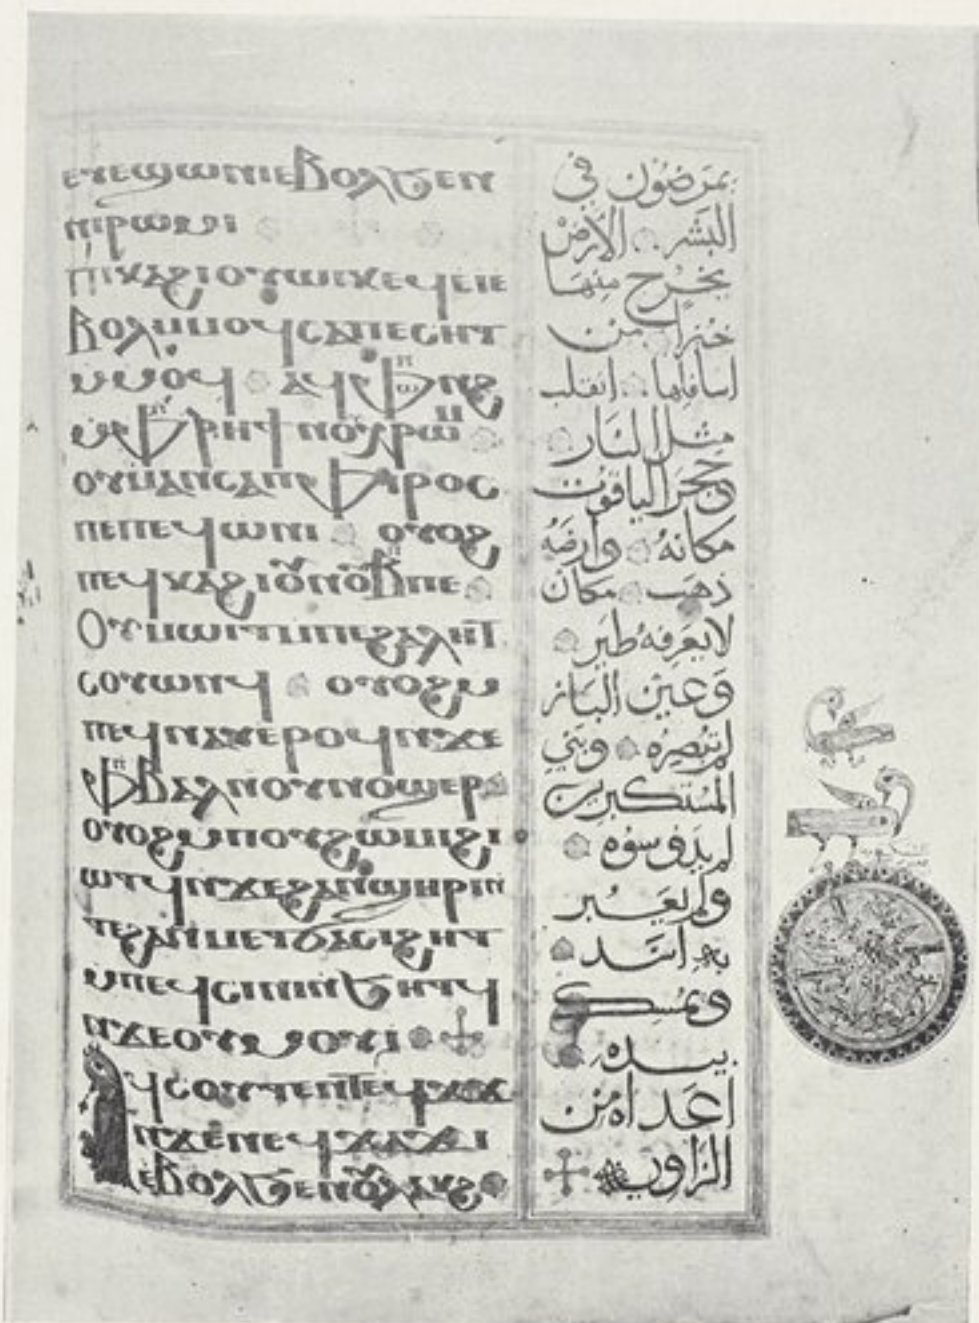 ⲉⲩⲉϣⲱⲛⲓ ⲉⲃⲟⲗϧⲉⲛ
ⲛⲓⲣⲱⲙⲓ
ⲡⲓⲕⲁϩⲓ ⲟⲩⲱⲓⲕ ⲉϥⲉⲓⲉ
ⲃⲟⲗⲙⲙⲟϥ ⲥⲁⲡⲉⲥⲏⲧ
ⲙⲙⲟϥ ⲁϥⲫⲱⲛϩ
ⲙⲫⲣⲏϯ ⲛⲟⲩⲭⲣⲱⲙ
ⲟⲩⲙⲁⲛⲥⲁⲡⲫⲓⲣⲟⲥ
ⲡⲉ ⲡⲉϥⲱⲛⲓ ⲟⲩⲟϩ
ⲡⲉϥⲕⲁϩⲓ ⲟⲩⲛⲟⲩⲃⲡⲉ
ⲟⲩⲙⲱⲓⲧ ⲙⲡⲉϩⲁⲗⲏⲧ
ⲥⲟⲩⲱⲛϥ ⲟⲩⲟϩ ⲙ
ⲡⲉϥⲛⲁⲩ ⲉⲣⲟϥ ⲛϫⲉ
ⲫⲃⲁⲗ ⲛⲟⲩⲛⲟϣⲉⲣ
ⲟⲩⲟϩ ⲙⲡⲟⲩϩⲱⲙⲓ ϩⲓ
ⲱⲧϥ ⲛϫⲉ ϩⲁⲛϣⲏⲣⲓ ⲛ
ⲧⲉ ϩⲁⲛⲡⲉⲧϭⲁⲥⲓϩⲏⲧ
ⲙⲡⲉϥⲥⲓⲛⲓ ⲛϧⲏⲧϥ
ⲛϫⲉ ⲟⲩⲙⲟⲩⲓ
ⲁϥⲥⲟⲩⲧⲉⲛ ⲧⲉϥϫⲓϫ
ⲛϫⲉ ⲛⲉϥϫⲁϫⲓ
ⲉⲃⲟⲗϧⲉⲛ
يمرضون في
البشر الأرض
يخرج منها
خبزا من
اسافلها انقلب
مثل النار
وحجر الياقوت
مكانه وارضه
ذهب مكان
لا يعرفه طير
وعين الباز
لم تبصره وبني
المستكبرين
لم يدوسوه
ولم يعبر
به اسد
ويمسك
بيده
اعداه من